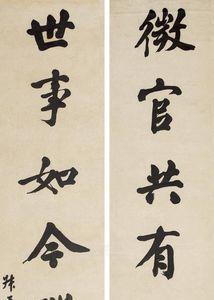 微官共有
世事如今